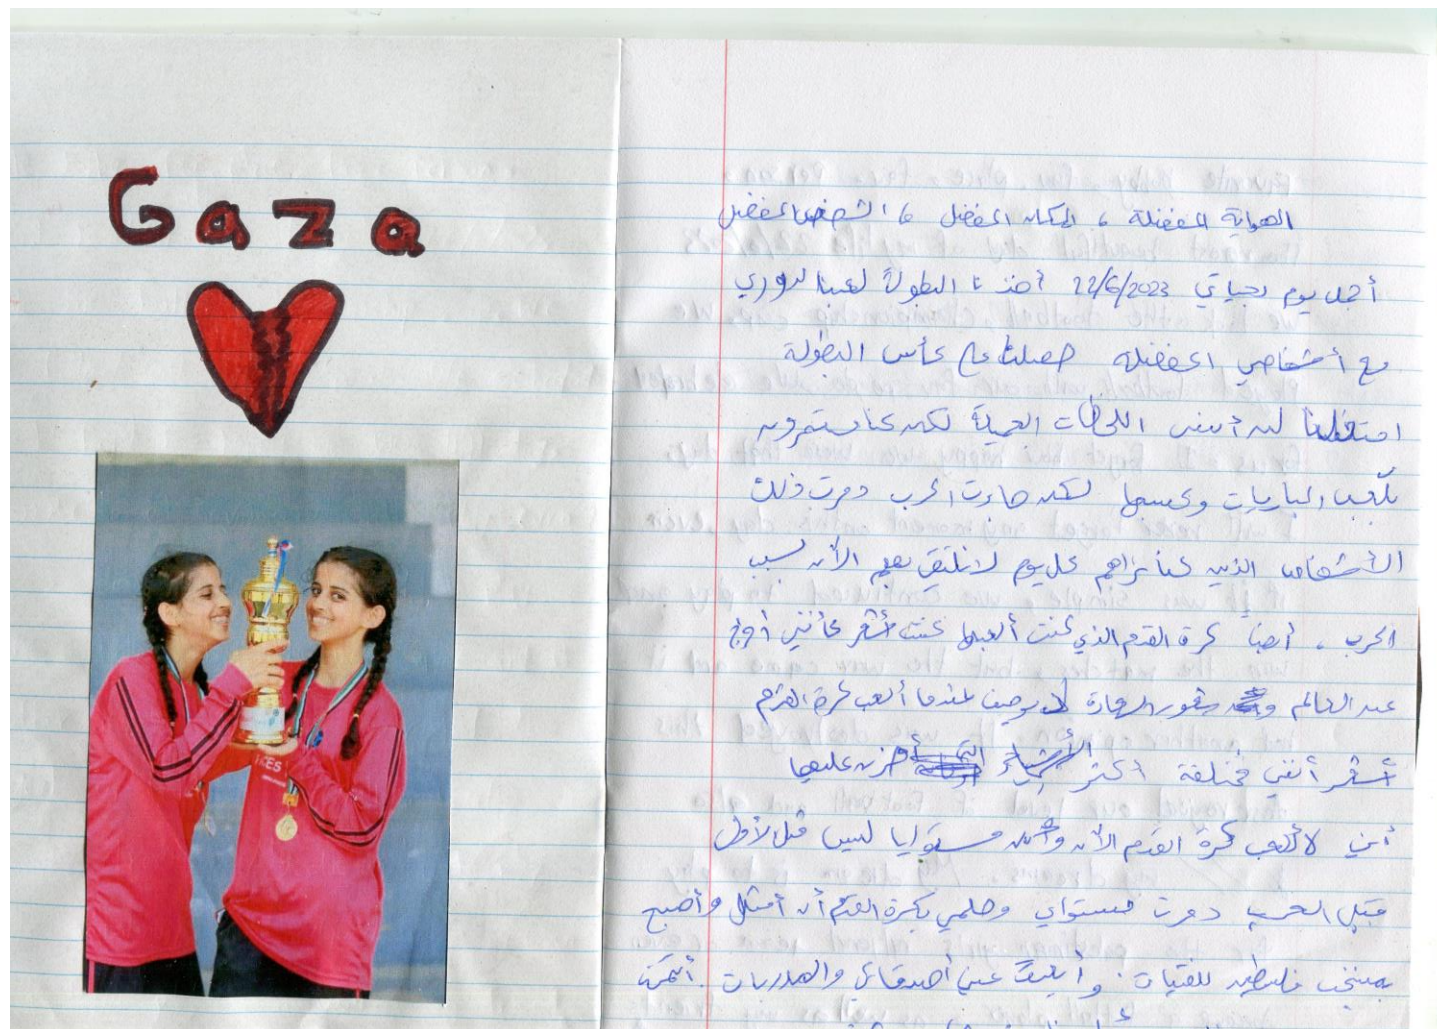 Gaza
الهواية المفضلة، المكان المفضل، الشخص المفضل
أجمل يوم بحياتي 22/6/2023 أخذنا البطولة لعبنا الدوري
مع أشخاصي المفضلة حصلنا على كأس البطولة
احتفلنا لن أنسى اللحظات الجميلة لكن كنا مستمرون
بلعب المباريات وكسبها لكن جاءت الحرب دمرت ذلك
الأشخاص الذين كنا نراهم كل يوم لا نلتقي بهم الأن بسبب
الحرب. أيضا كرة القدم الذي كنت ألعبها كنت أشعر كأنني أخرج
عن العالم وشعور السعادة لا يوصف عندما ألعب كرة القدم
أشعر أنني مختلفة أكثر الأشياء أحزن عليها
أني لا ألعب كرة القدم الأن مستوايا ليس مثل الأول
قبل الحرب دمرت مستواي وحلمي بكرة القدم أن أمثل وأصبح
بمنتخب فلسطين للفتيات. أصدقائي والمدربات. أتمنى